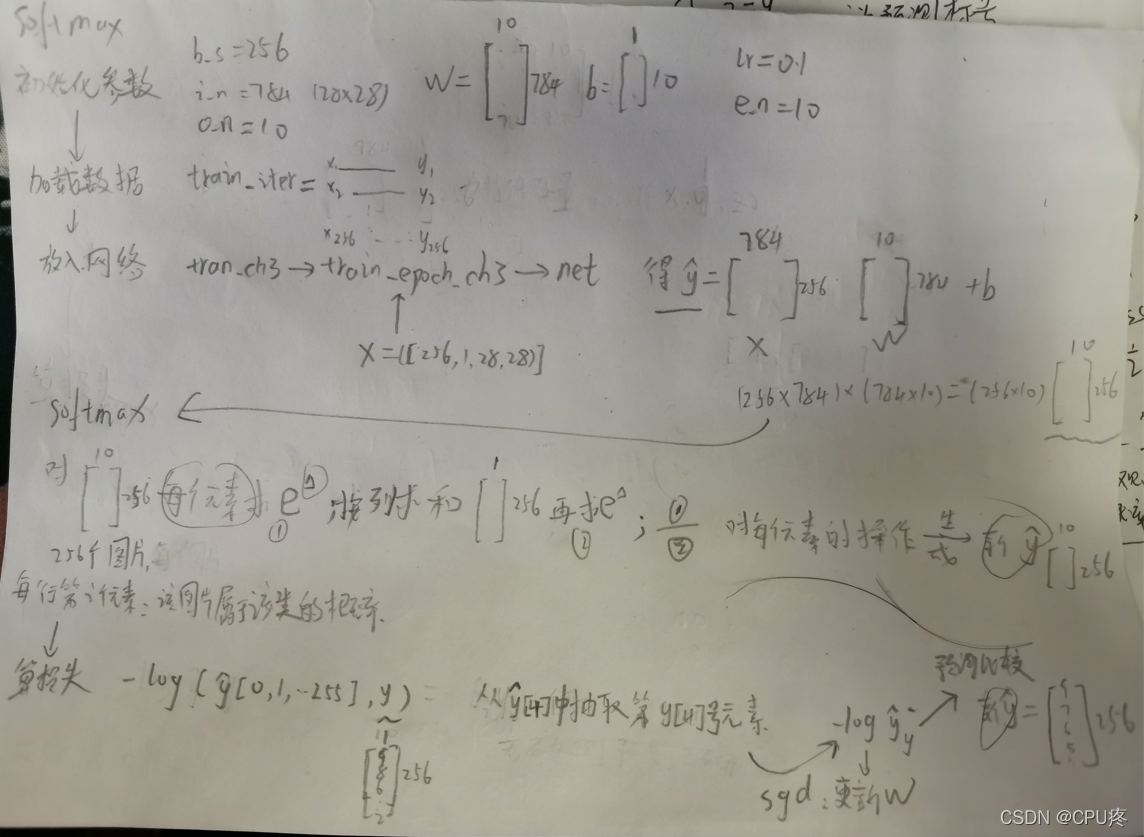 softmax
初始化参数
b_s=256
i_n=784 (28×28)
o_n=10
10
W=[ ]784
1
b=[ ]10
lr=0.1
e_n=10
加载数据
train_iter=
x₁ y₁
x₂ y₂
x256 ... y256
放入网络
tran_ch3→train_epoch_ch3→net
X=([256,1,28,28)]
784 10
得ŷ=[ ]256 [ ]784 +b
X W
(256×784)×(784×10)=(256×10)
10
[ ]256
softmax
10 1
对[ ]256每个元素求e^ ;按列求和[ ]256再求e^; ①/②
① ②
对每个元素的操作 生成 新ŷ
10
[ ]256
256个图片,
每行第i个元素:该图片属于该类的概率.
算损失
-log(ŷ[0,1,..255],y)=
[ ]256
从ŷ[4]中抽取第y[4]号元素.
-log ŷy
预测比较
新ŷ=[ ]256
sgd:更新W
CSDN @CPU疼